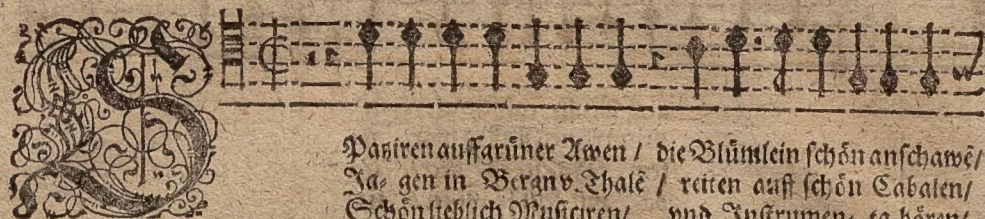 SPatziren auff grüner Awen / die Blümlein schön anschawē/
Ja- gen in Bergn v. Thalē / reiten auff schön Cabalen/
Schön lieblich Musiciren/ vnd Instrumen ta hören/